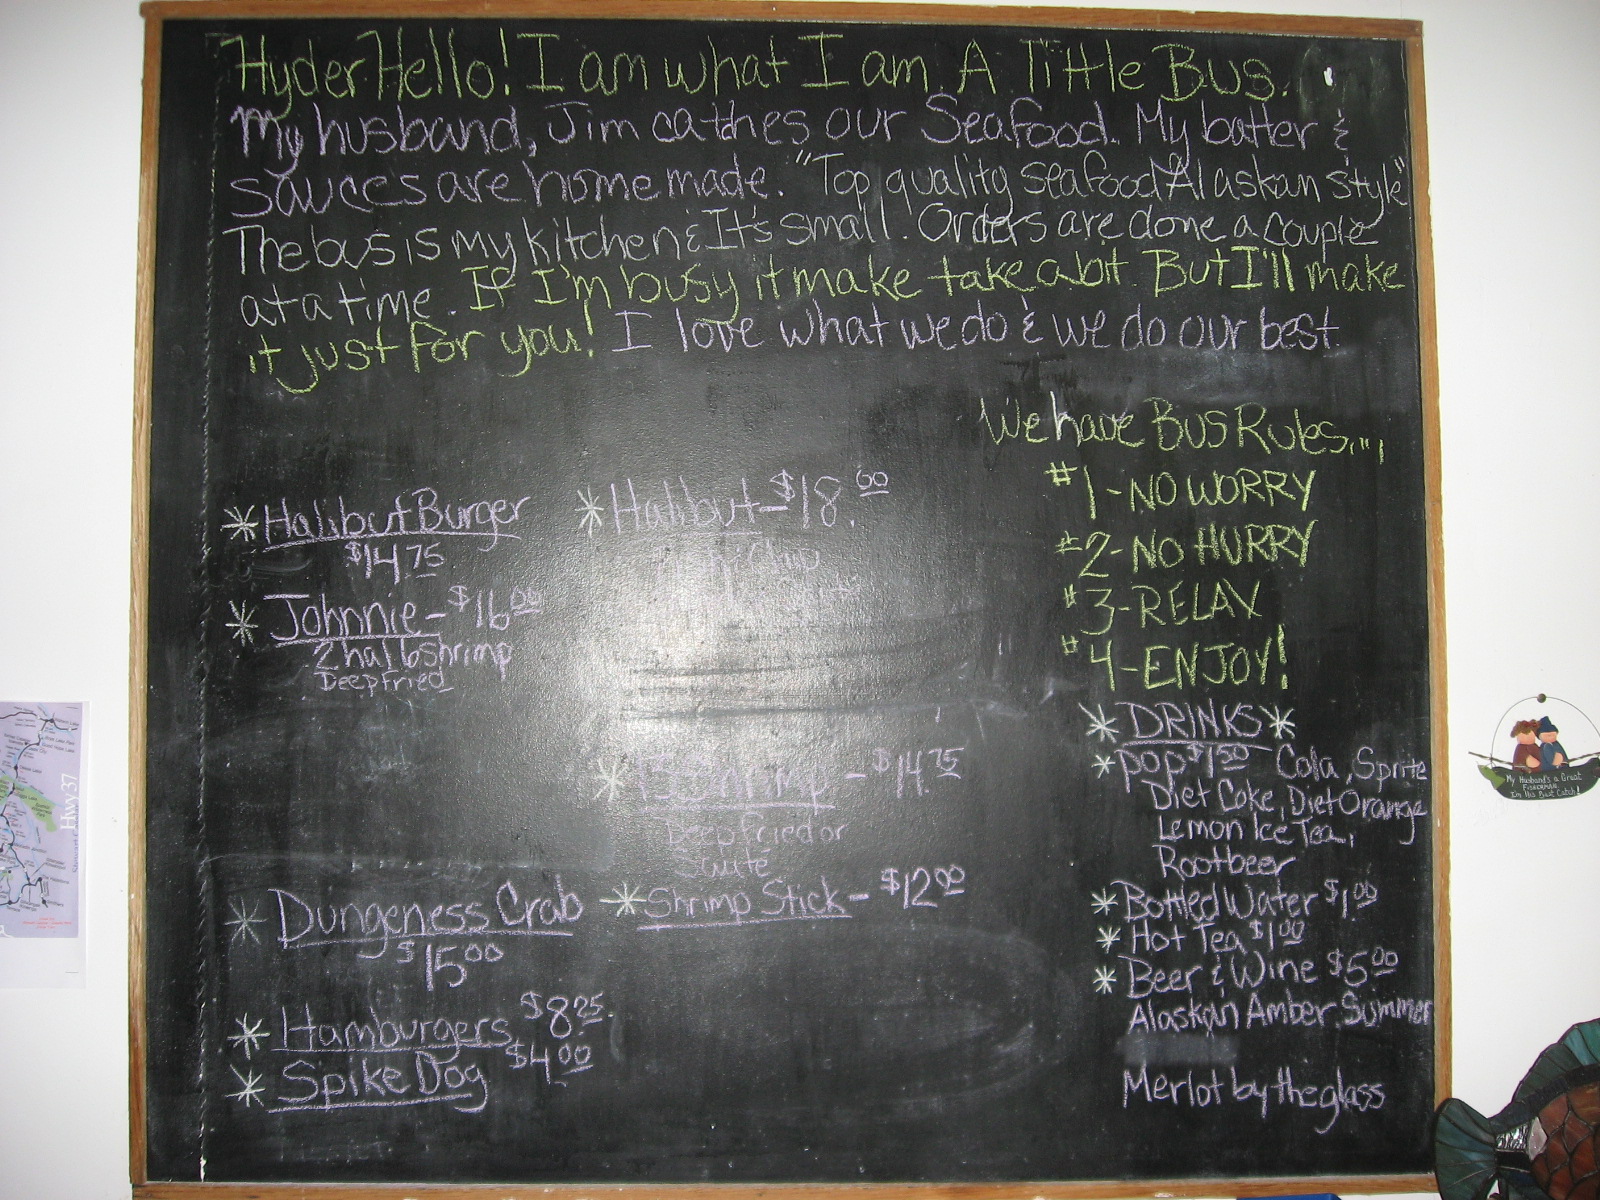 Hyder Hello! I am what I am. A little Bus.
My husband, Jim catches our Seafood. My batter &
sauces are home made. "Top quality seafood Alaskan style"
The bus is my kitchen & It's small! Orders are done a couple
at a time. If I'm busy it make take a bit. But I'll make
it just for you! I love what we do & we do our best.
We have Bus Rules....,
#1-NO WORRY
#2-NO HURRY
#3-RELAX
#4-ENJOY!
*Halibut Burger
$14.75
*Johnnie-$16.00
2 hal 6 shrimp
Deep Fried
*Dungeness Crab
$15.00
*Hamburgers $8.25
*Spike Dog $4.00
*Halibut-$18.00
*Shrimp-$14.75
Deep fried or
Sauté
*Shrimp Stick-$12.00
*DRINKS*
*pop $1.50 Cola, Sprite
Diet Coke, Diet Orange
Lemon Ice Tea,
Rootbeer
*Bottled Water $1.00
*Hot Tea $1.00
*Beer & Wine $5.00
Alaskan Amber, Summer
Merlot by the glass
Hwy 37
My Husband's a Great
FISHERMAN
I'm His Best Catch!